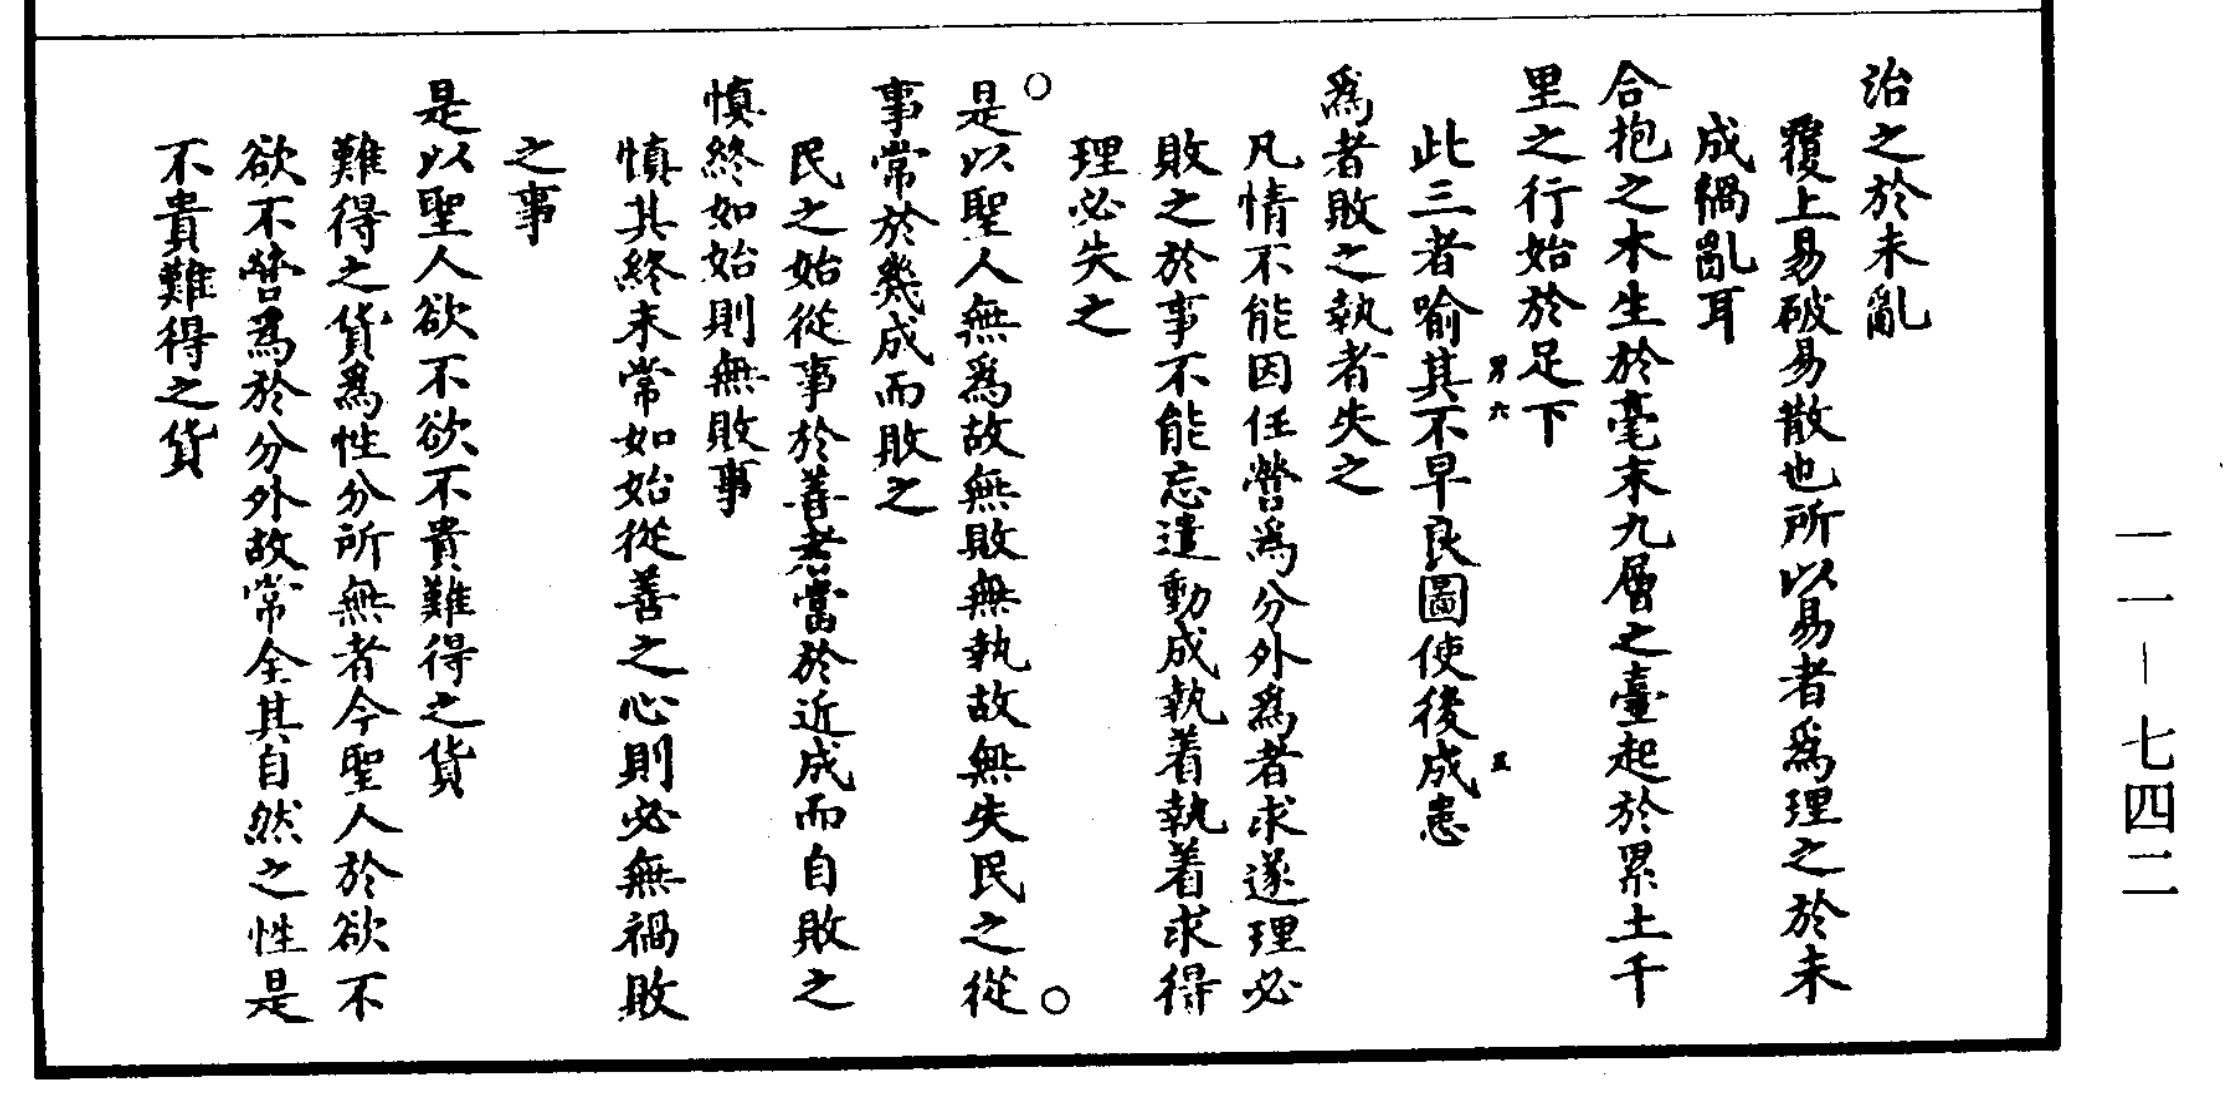 治之於未亂
覆上易破易散也所以易者爲理之於未
成禍亂耳
合抱之木生於毫末九層之臺起於累土千
里之行始於足下
男六
五
此三者喻其不早良圖使後成患
爲者敗之執者失之
凡情不能因任營爲分外爲者求遂理必
敗之於事不能忘遣動成執着執着求得
理必失之
○是以聖人無爲故無敗無執故無失民之從○
事常於幾成而敗之
民之始從事於善者當於近成而自敗之
慎終如始則無敗事
慎其終末常如始從善之心則必無禍敗
之事
是以聖人欲不欲不貴難得之貨
難得之貨爲性分所無者今聖人於欲不
欲不營爲於分外故常全其自然之性是
不貴難得之貨
一一－七四二